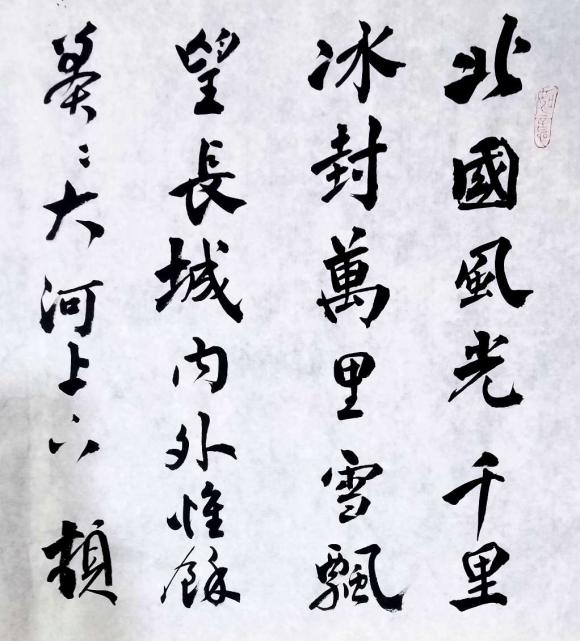 北國風光千里
冰封萬里雪飄
望長城内外惟餘
莽〻大河上下頓